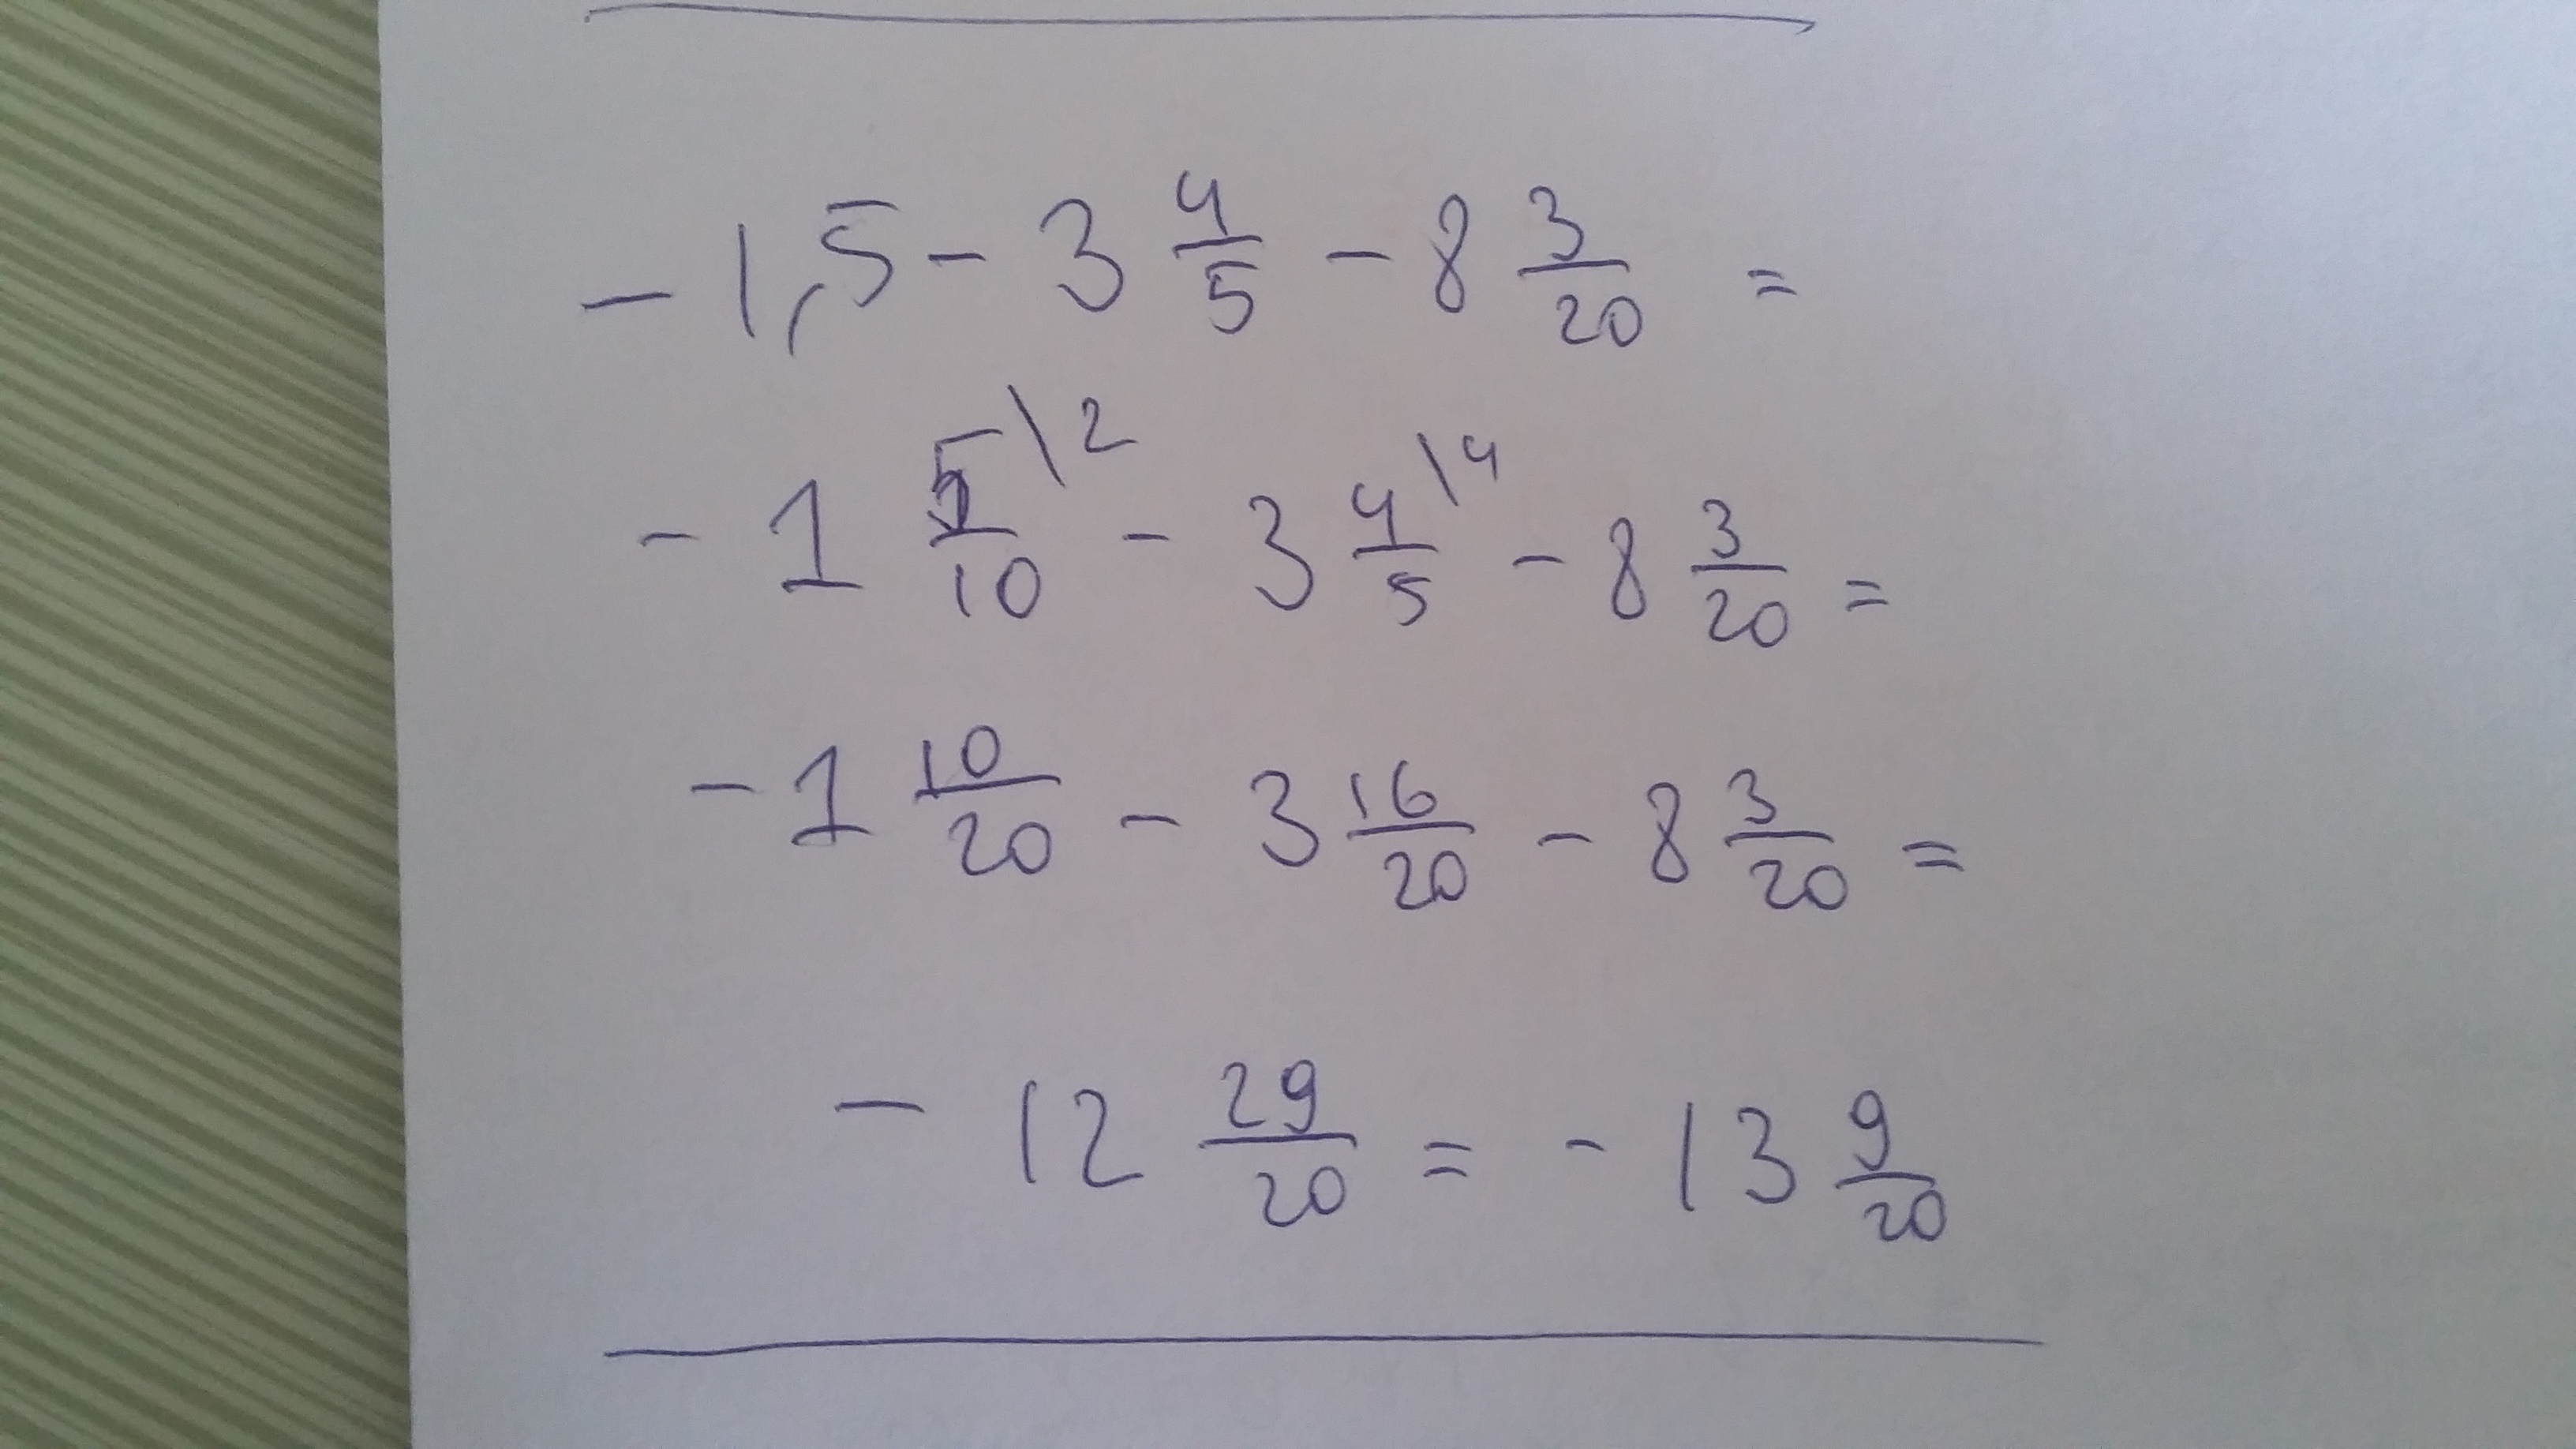 - 1,5 - 3 4/5 - 8 3/20 =
- 1 5/10 \2 - 3 4/5 \4 - 8 3/20 =
- 1 10/20 - 3 16/20 - 8 3/20 =
- 12 29/20 = - 13 9/20